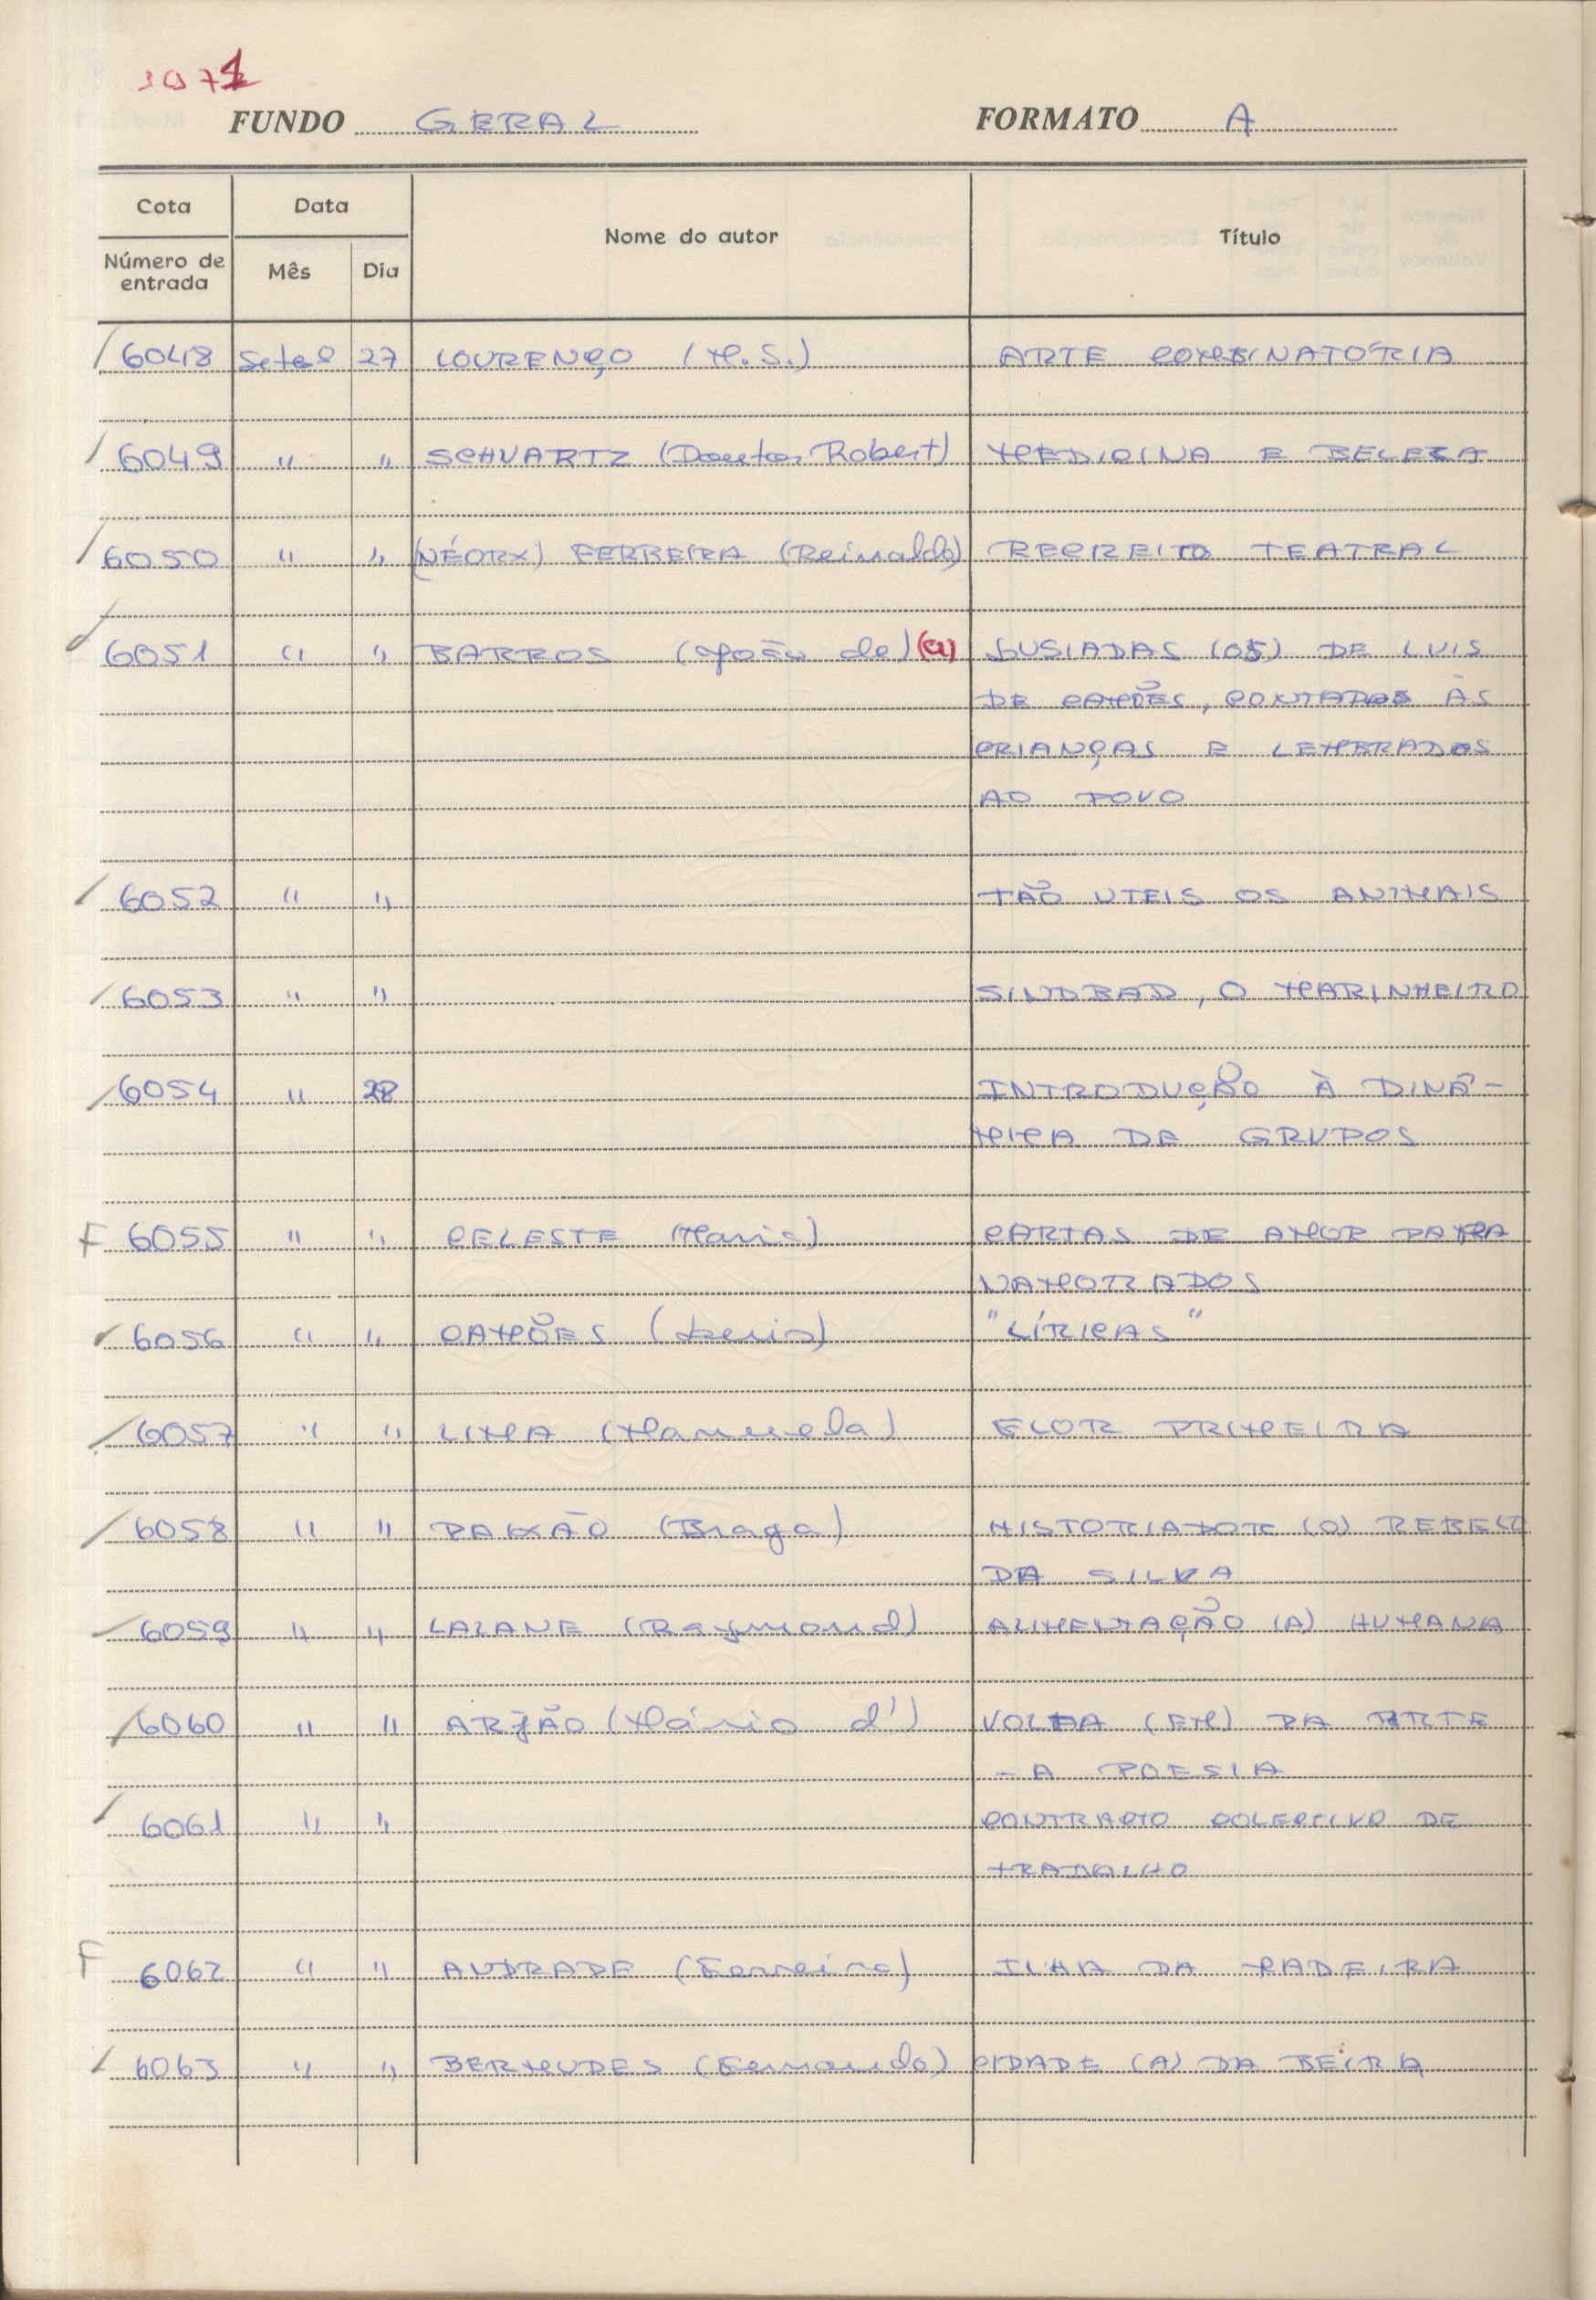 1971
FUNDO GERAL FORMATO A
Cota Data Nome do autor Título
Número de entrada Mês Dia
6048 Setº 27 LOURENÇO (M.S.) ARTE COMBINATÓRIA
6049 " " SCHVARTZ (Doutor Robert) MEDICINA E BELEZA
6050 " " (NÉORX) FERREIRA (Reinaldo) RECREIO TEATRAL
6051 " " BARROS (João de) (a) LUSIADAS (OS) DE LUIS
DE CAMÕES, CONTADOS ÀS
CRIANÇAS E LEMBRADOS
AO POVO
6052 " " TÃO UTEIS OS ANIMAIS
6053 " " SINDBAD, O MARINHEIRO
6054 " 28 INTRODUÇÃO À DINÂ-
MICA DE GRUPOS
F 6055 " " CELESTE (Maria) CARTAS DE AMOR PARA
NAMORADOS
6056 " " CAMÕES (Luis) "LÍRICAS"
6057 " " LIMA (Manuela) FLOR PRIMEIRA
6058 " " PAIXÃO (Braga) HISTORIADOR (O) REBELO
DA SILVA
6059 " " LALANE (Raymond) ALIMENTAÇÃO (A) HUMANA
6060 " " ARJÃO (Mário d') VOLTA (EM) DA ARTE
- A POESIA
6061 " " CONTRACTO COLECTIVO DE
TRABALHO
F 6062 " " ANDRADE (Ferreira) ILHA DA MADEIRA
6063 " " BERMUDES (Fernando) CIDADE (A) DA BEIRA